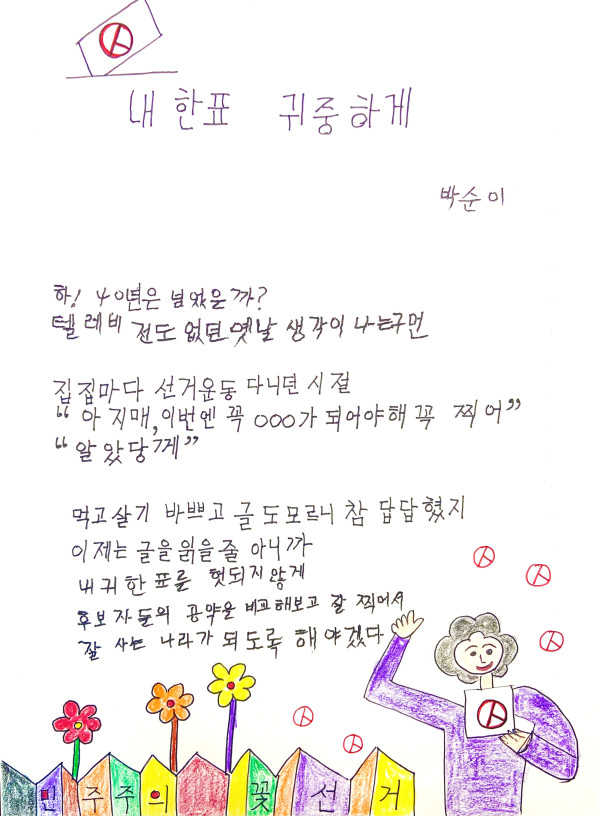 내 한표 귀중하게
박순이
하! 40년은 넘었을까?
텔레비전도 없던 옛날 생각이 나는구먼
집집마다 선거운동 다니던 시절
“아지매, 이번엔 꼭 000가 되어야해 꼭 찍어”
“알았당께”
먹고살기 바쁘고 글도모르니 참 답답혔지
이제는 글을 읽을 줄 아니까
내 귀한 표를 헛되지 않게
후보자들의 공약을 비교해보고 잘 찍어서
잘 사는 나라가 되도록 해야겠다
민주주의 꽃 선거